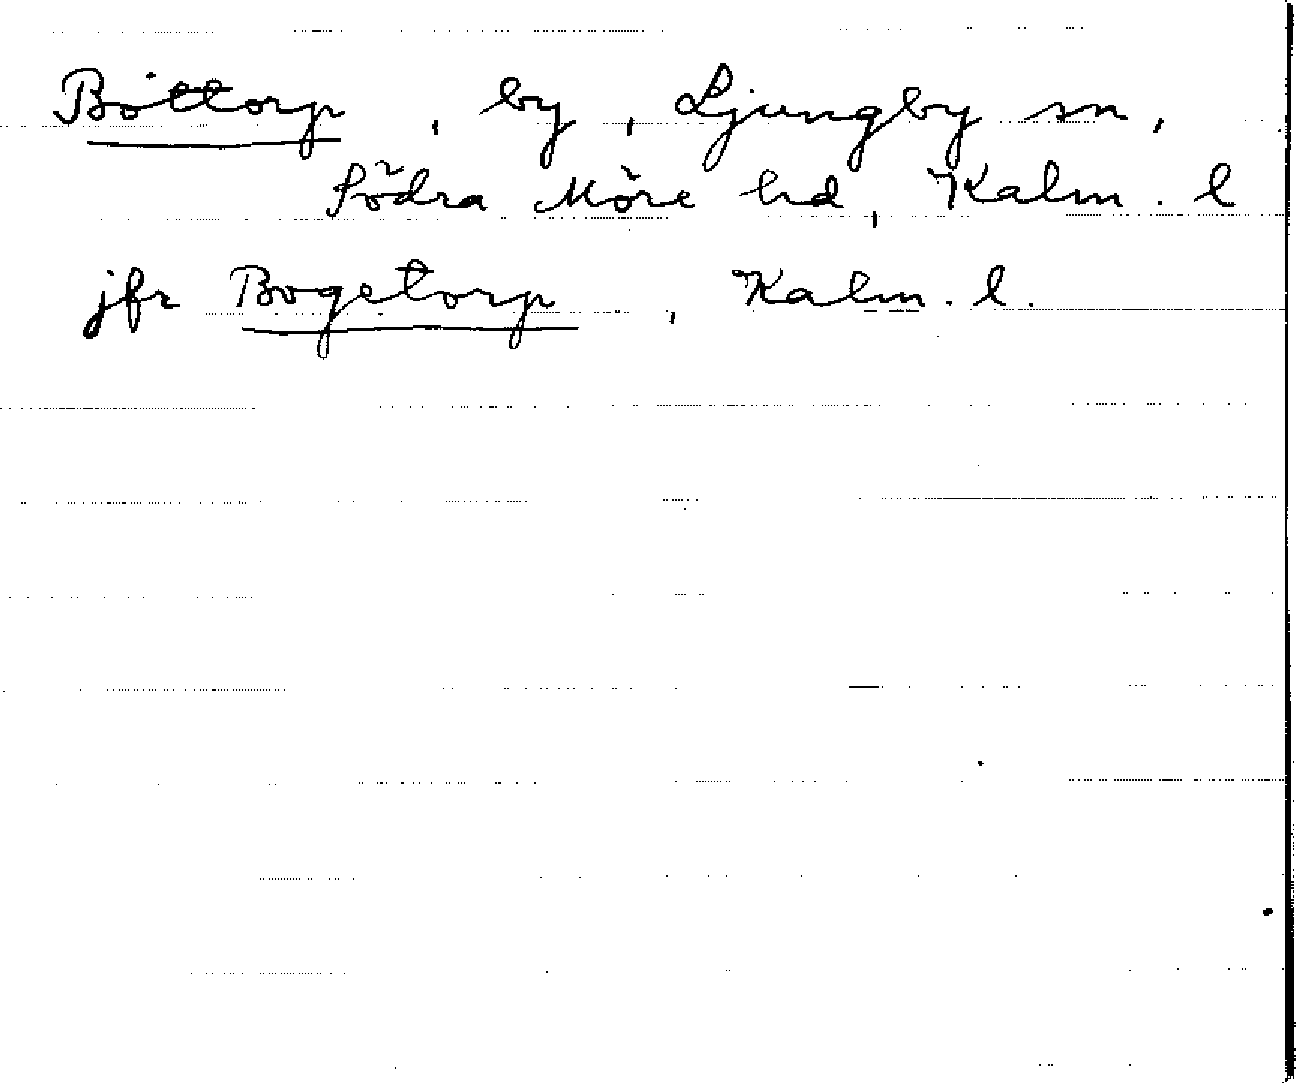 Böttorp, by, Ljungby sn,
Södra Möre hd, Kalm. l
jfr Bogetorp, Kalm. l.